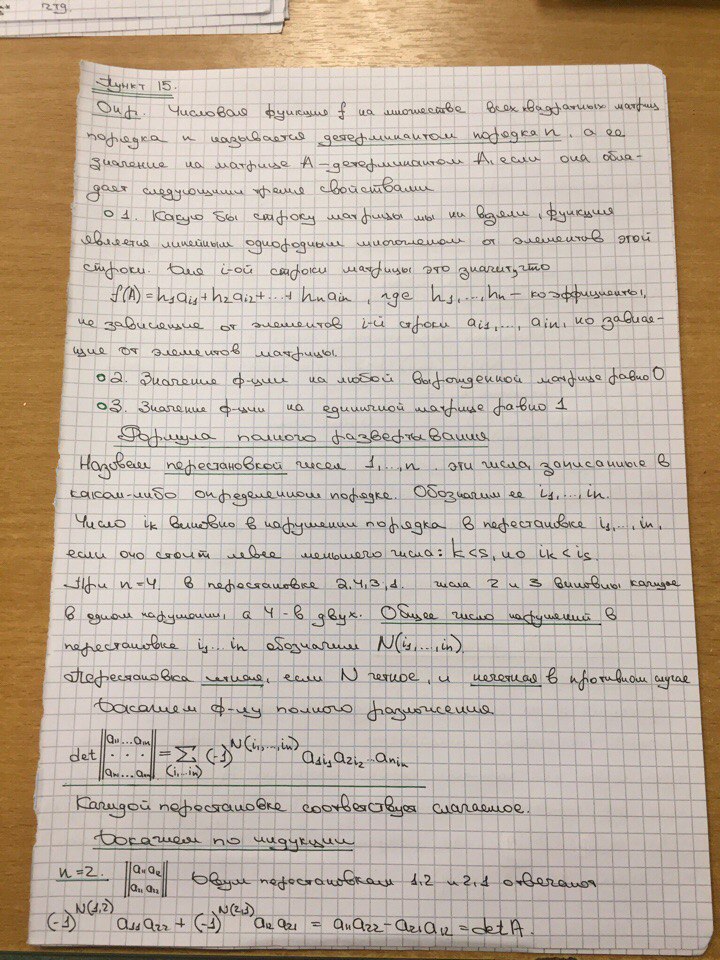 чтд.
Пункт 15.
Опр. Числовая функция f на множестве всех квадратных матриц
порядка n называется детерминантом порядка n, а ее
значение на матрице A – детерминантом A, если она обла-
дает следующими тремя свойствами
1. Какую бы строку матрицы мы ни взяли, функция
является линейным однородным многочленом от элементов этой
строки. Для i-ой строки матрицы это значит, что
f(A) = h₁aᵢ₁ + h₂aᵢ₂ + ... + hₙaᵢₙ, где h₁, ..., hₙ – коэффициенты,
не зависящие от элементов i-й строки aᵢ₁, ..., aᵢₙ, но завися-
щие от элементов матрицы.
2. Значение ф-ции на любой вырожденной матрице равно 0
3. Значение ф-ции на единичной матрице равно 1
Формула полного развертывания
Назовем перестановкой чисел 1, ..., n эти числа, записанные в
каком-либо определенном порядке. Обозначим ее i₁, ..., iₙ.
Число iₖ виновно в нарушении порядка в перестановке i₁, ..., iₙ,
если оно стоит левее меньшего числа: k<s, но iₖ < iₛ.
При n=4. в перестановке 2,4,3,1. числа 2 и 3 виновны каждое
в одном нарушении, а 4 - в двух. Общее число нарушений в
перестановке i₁...iₙ обозначим N(i₁, ..., iₙ).
Перестановка четная, если N четное, и нечетная в противном случае
Докажем ф-лу полного разложения
det ||a₁₁...a₁ₙ . . . aₙ₁...aₙₙ|| = Σ(i₁...iₙ) (-1)^N(i₁,...,iₙ) a₁ᵢ₁a₂ᵢ₂...aₙᵢₙ
Каждой перестановке соответствует слагаемое.
Докажем по индукции
n=2. ||a₁₁ a₁₂ a₁₁ a₂₂|| Двум перестановкам 1,2 и 2,1 отвечают
(-1)^N(1,2) a₁₁a₂₂ + (-1)^N(2,1) a₁₂a₂₁ = a₁₁a₂₂ - a₂₁a₁₂ = det A.